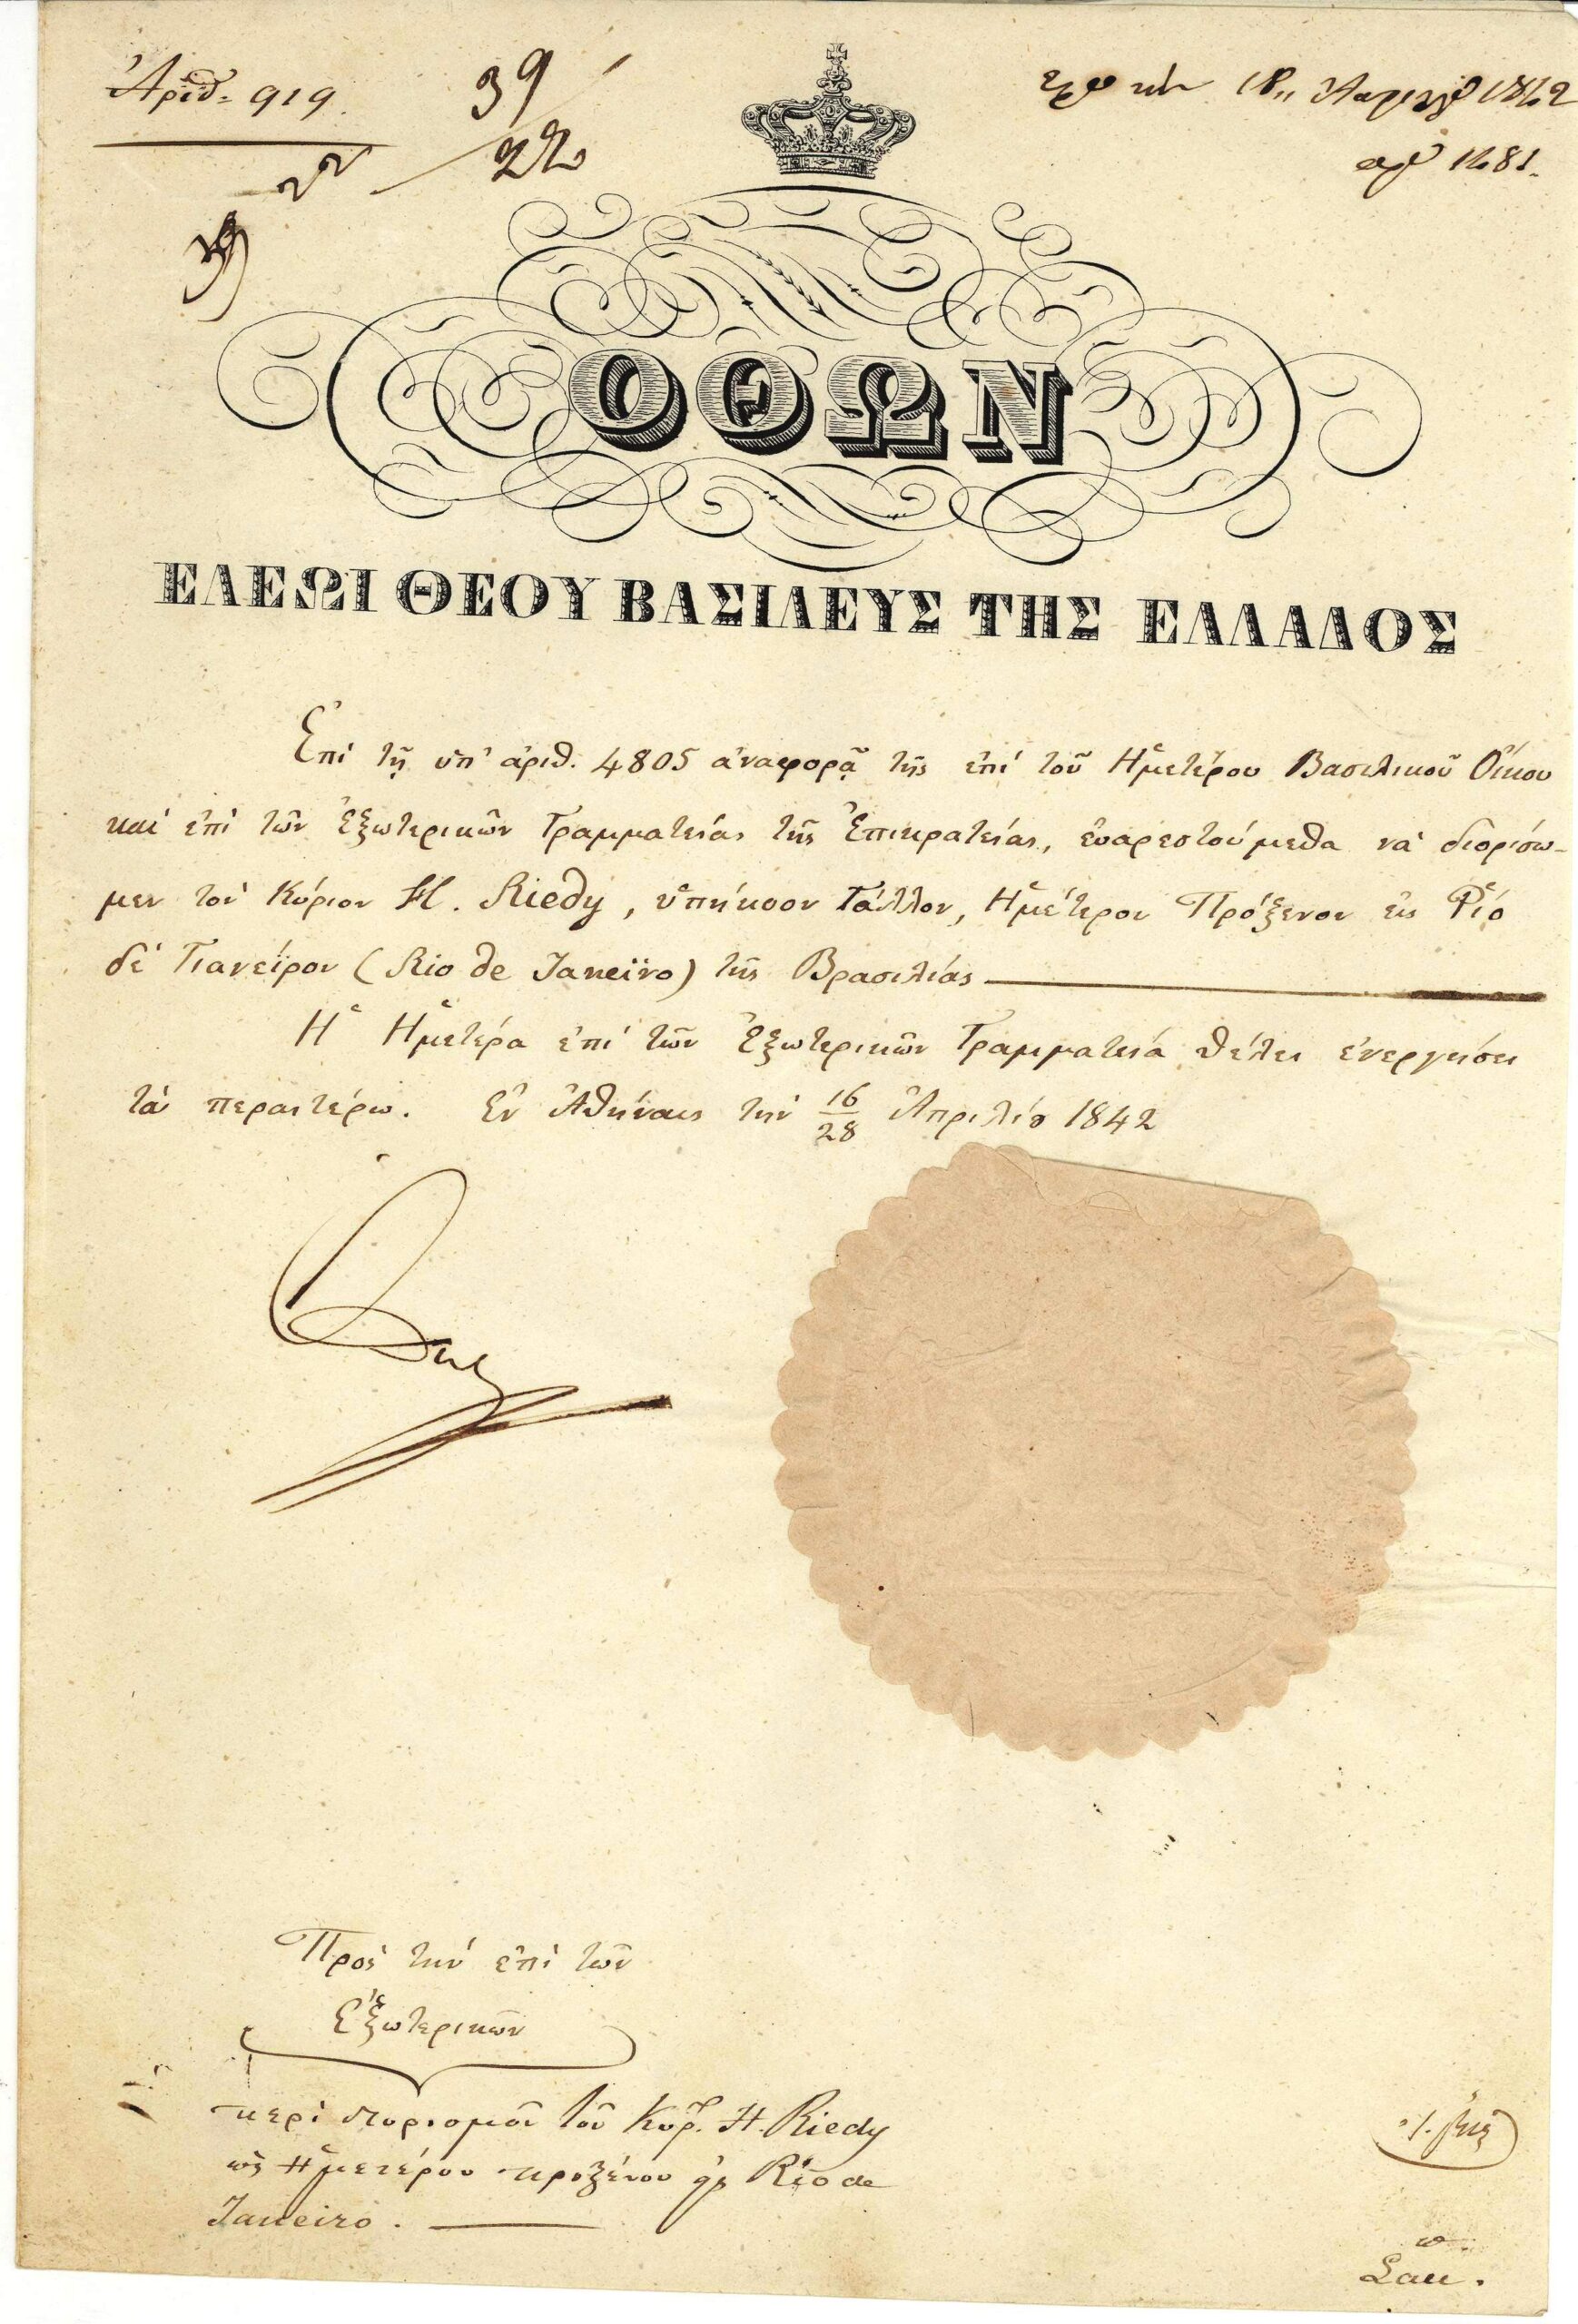 Ἀριθ. 919.
39
22
18 Ἀπριλίου 1842
ἀρ 1481.
22
39
ΟΘΩΝ
ΕΛΕΩΙ ΘΕΟΥ ΒΑΣΙΛΕΥΣ ΤΗΣ ΕΛΛΑΔΟΣ
Ἐπὶ τῇ ὑπ' ἀριθ. 4805 ἀναφορᾷ τῆς ἐπὶ τοῦ Ἡμετέρου Βασιλικοῦ Οἴκου
καὶ ἐπὶ τῶν Ἐξωτερικῶν Γραμματείας τῆς Ἐπικρατείας, εὐαρεστούμεθα νὰ διορίσω-
μεν τὸν Κύριον H. Riedy, ὑπήκοον Γάλλον, Ἡμέτερον Πρόξενον εἰς Ῥίο
δὲ Γιανεῖρον (Rio de Janeïro) τῆς Βρασιλίας
Ἡ Ἡμετέρα ἐπὶ τῶν Ἐξωτερικῶν Γραμματεία θέλει ἐνεργήσει
τὰ περαιτέρω. Ἐν Ἀθήναις τὴν 16/28 Ἀπριλίου 1842
Πρὸς τὴν ἐπὶ τῶν
Ἐξωτερικῶν
περὶ διορισμοῦ τοῦ Κυρ. H. Riedy
ὡς Ἡμετέρου προξένου εἰς Rio de
Janeiro.